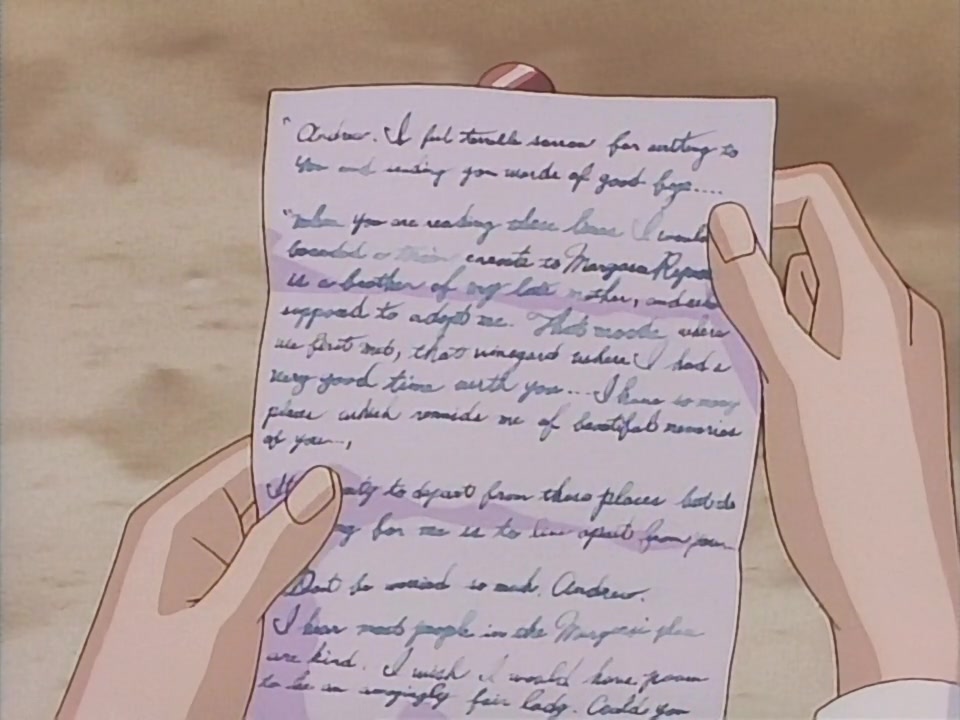 "Andrew. I feel terrible sorrow for writing to
you and sending you words of good bye....
"When you are reading these lines I would
boarded a to Margasa
is a brother of my late mother, and
supposed to adopt me. That where
we first met, that vineyard where I had a
very good time with you... I have so many
places which reminds me of beautiful memories
of you...,
to depart from those places but do
for me is to live apart from you...
Dont be worried so much, Andrew.
I hear most people in the place
are kind. I wish I would have
to be an amazingly fair lady. Could you